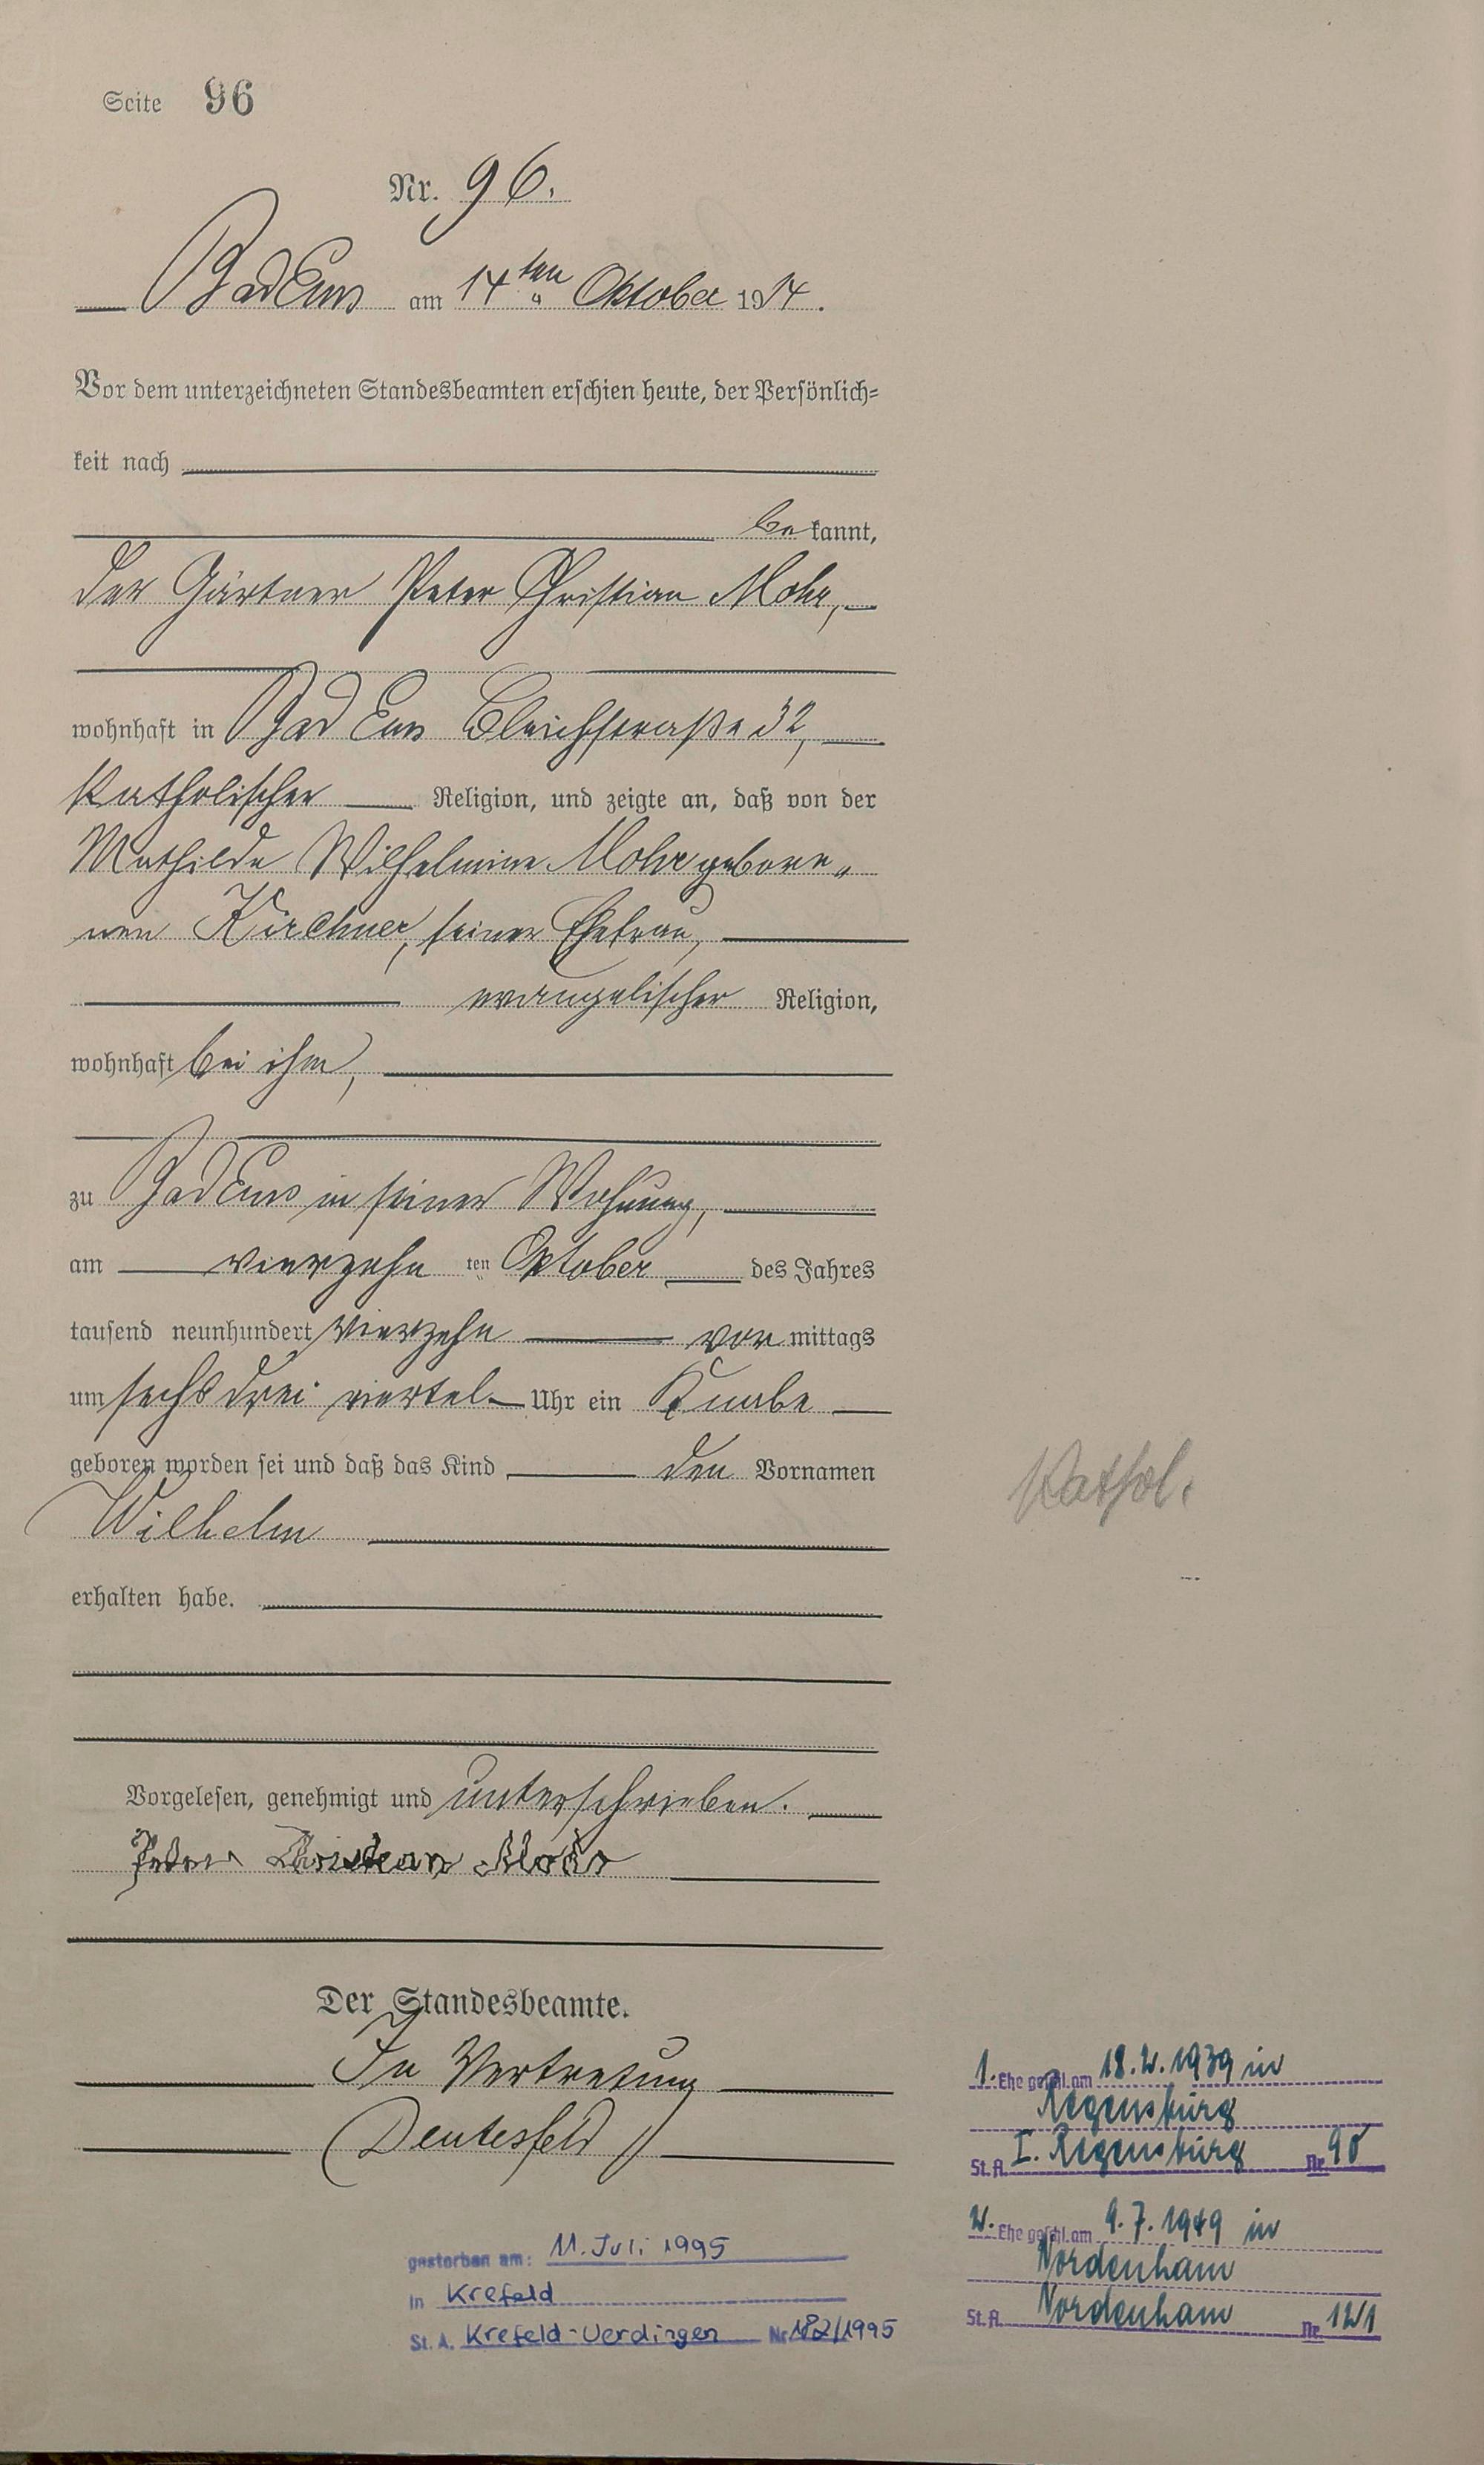 Seite 96
Nr. 96.
Bad Ems am 14ten Oktober 1914.
Vor dem unterzeichneten Standesbeamten erschien heute, der Persönlich=
keit nach
be kannt,
der Gärtner Peter Christian Mohr,
wohnhaft in Bad Ems Bleichstraße 32,
katholischer Religion, und zeigte an, daß von der
Mathilde Wilhelmine Mohr gebore„
nen Kirchner, seiner Ehefrau,
evangelischer Religion,
wohnhaft bei ihm,
zu Bad Ems in seiner Wohnung,
am vierzehn ten Oktober des Jahres
tausend neunhundert vierzehn vor mittags
um sechs drei viertel Uhr ein Knabe
geboren worden sei und daß das Kind den Vornamen
Kathol.
Wilhelm
erhalten habe.
Vorgelesen, genehmigt und unterschrieben.
Peter Christian Mohr
Der Standesbeamte.
In Vertretung
Deutesfeld
1. Ehe geschl. am 18.2.1939 in
Regensburg
St.A. I. Regensburg Nr. 90
2. Ehe geschl. am 9.7.1949 in
Nordenham
St.A. Nordenham Nr. 121
gestorben am: 11. Juli 1995
in Krefeld
St. A. Krefeld-Uerdingen Nr. 182/1995